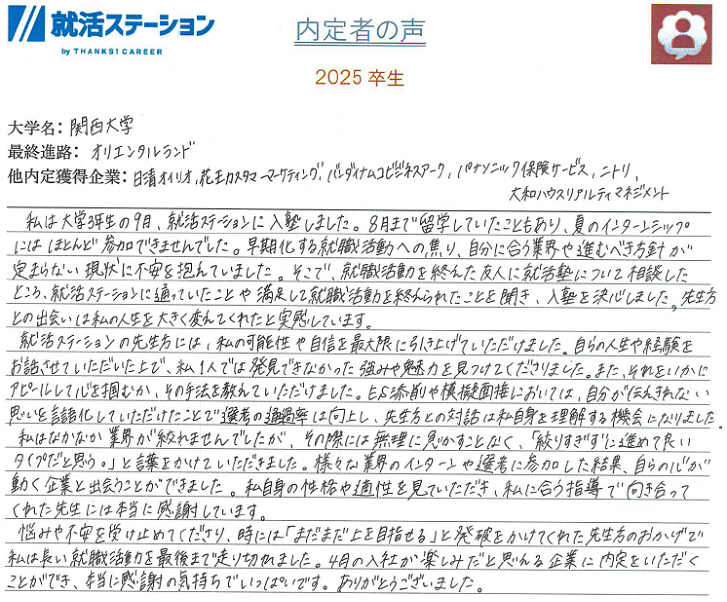 就活ステーション
by THANKS! CAREER
内定者の声
2025 卒生
大学名: 関西大学
最終進路: オリエンタルランド
他内定獲得企業: 日清オイリオ, 花王カスタマーマーケティング, バンダイナムコビジネスアーク, パナソニック保険サービス, ニトリ,
大和ハウスリアルティマネジメント
私は大学3年生の9月、就活ステーションに入塾しました。8月まで留学していたこともあり、夏のインターンシップ
にはほとんど参加できませんでした。早期化する就職活動への焦り、自分に合う業界や進むべき方針が
定まらない現状に不安を抱えていました。そこで、就職活動を終えた友人に就活塾について相談した
ところ、就活ステーションに通っていたことや満足して就職活動を終えられたことを聞き、入塾を決心しました。先生方
との出会いは私の人生を大きく変えてくれたと実感しています。
就活ステーションの先生方には、私の可能性や自信を最大限に引き上げていただけました。自らの人生や経験を
お話させていただいた上で、私1人では発見できなかった強みや魅力を見つけてくださりました。また、それをいかに
アピールして心を掴むか、その手法を教えていただけました。ES添削や模擬面接においては、自分が伝えきれない
思いを言語化していただけたことで選考の通過率は向上し、先生方との対話は私自身を理解する機会になりました。
私はなかなか業界が絞れませんでしたが、その際には無理に急かすことなく、「絞りすぎずに進めて良い
タイプだと思う。」と言葉をかけていただきました。様々な業界のインターンや選考に参加した結果、自らの心が
動く企業と出会うことができました。私自身の性格や適性を見ていただき、私に合う指導で向き合って
くれた先生には本当に感謝しています。
悩みや不安を受け止めてくださり、時には「まだまだ上を目指せる」と発破をかけてくれた先生方のおかげで
私は長い就職活動を最後まで走り切れました。4月の入社が楽しみだと思える企業に内定をいただく
ことができ、本当に感謝の気持ちでいっぱいです。ありがとうございました。